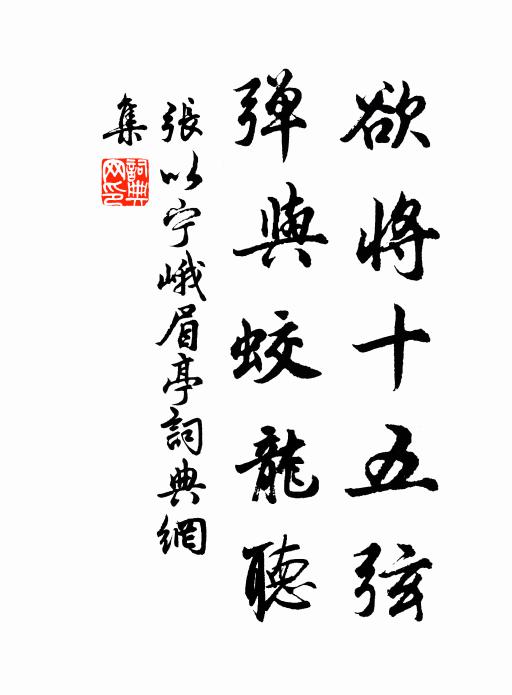 欲將十五弦
弹與蛟龍聽
張以宁峨眉亭詞典網
集
詞典
网印